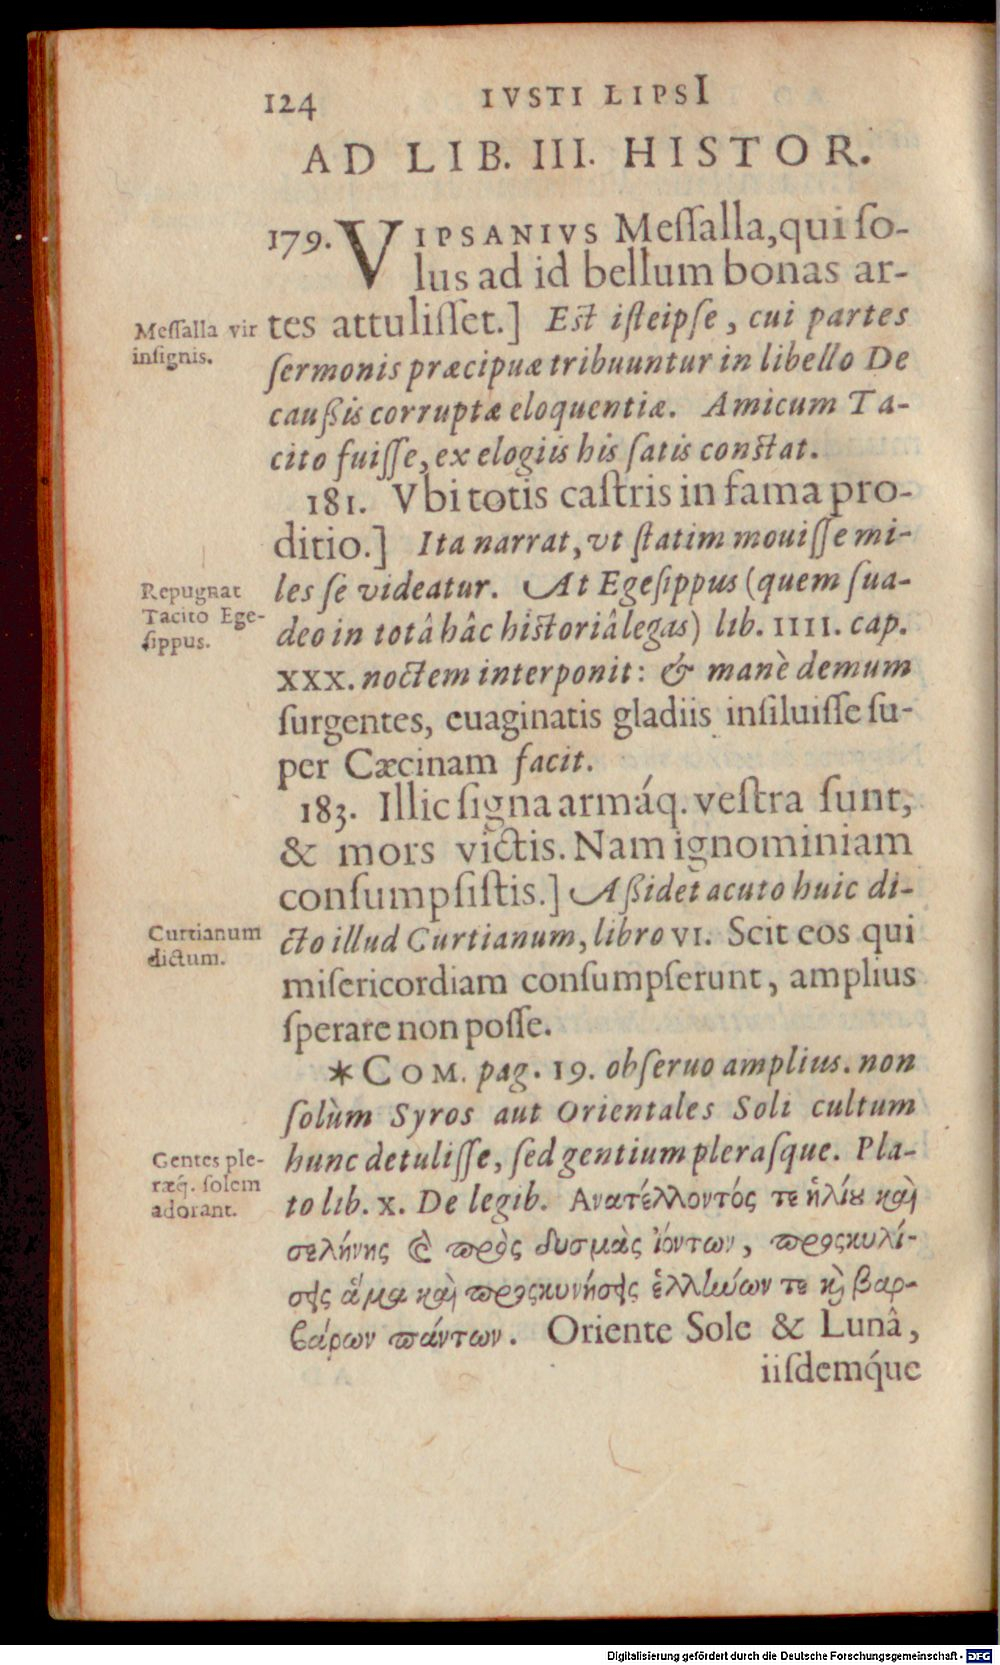 124 IVSTI LIPSI
AD LIB. III. HISTOR.
179. VIPSANIVS Meſſalla, qui ſo-
lus ad id bellum bonas ar-
tes attuliſſet.] Eſt iſte ipſe, cui partes
Meſſalla vir
inſignis.
ſermonis præcipuæ tribuuntur in libello De
caußis corruptæ eloquentiæ. Amicum Ta-
cito fuiſſe, ex elogiis his ſatis conſtat.
181. Vbi totis caſtris in fama pro-
ditio.] Ita narrat, vt ſtatim mouiſſe mi-
les ſe videatur. At Egeſippus (quem ſua-
Repugnat
Tacito Ege-
ſippus.
deo in totâ hâc hiſtoriâ legas) lib. IIII. cap.
XXX. noctem interponit: & manè demum
ſurgentes, euaginatis gladiis inſiluiſſe ſu-
per Cæcinam facit.
183. Illic ſigna armáq. veſtra ſunt,
& mors victis. Nam ignominiam
conſumpſiſtis.] Aßidet acuto huic di-
Curtianum
dictum.
cto illud Curtianum, libro VI. Scit eos qui
miſericordiam conſumpſerunt, amplius
ſperare non poſſe.
*COM. pag. 19. obſeruo amplius. non
ſolùm Syros aut Orientales Soli cultum
hunc detuliſſe, ſed gentium pleraſque. Pla-
Gentes ple-
ræq́. ſolem
adorant.
to lib. X. De legib. Ανατέλλοντός τε ἡλίου καὶ
σελήνης καὶ πρὸς δυσμὰς ἰόντων, προςκυλί-
σεις ἅμα καὶ προςκυνήσεις ἑλλήνων τε καὶ βαρ-
βάρων πάντων. Oriente Sole & Lunâ,
iiſdemq́ue
Digitalisierung gefördert durch die Deutsche Forschungsgemeinschaft - DFG